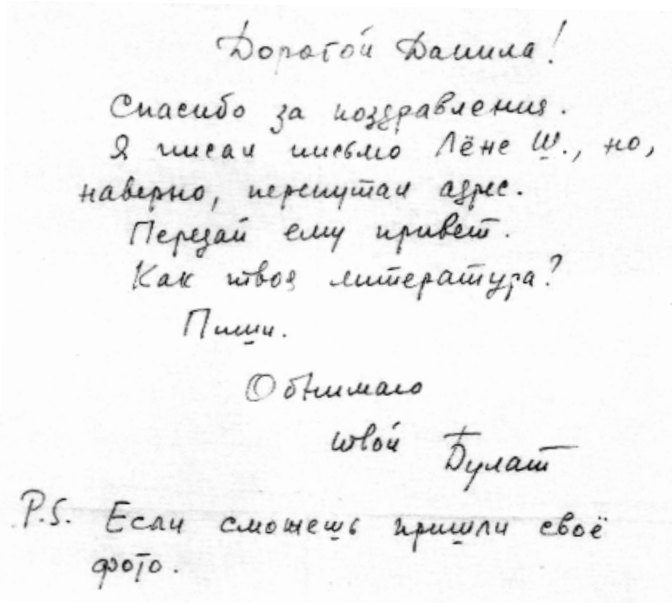 Дорогой Данила!
Спасибо за поздравления.
Я писал письмо Лёне Ш., но,
наверно, перепутал адрес.
Передай ему привет.
Как твоя литература?
Пиши.
Обнимаю
твой Булат
P.S. Если сможешь пришли своё
фото.